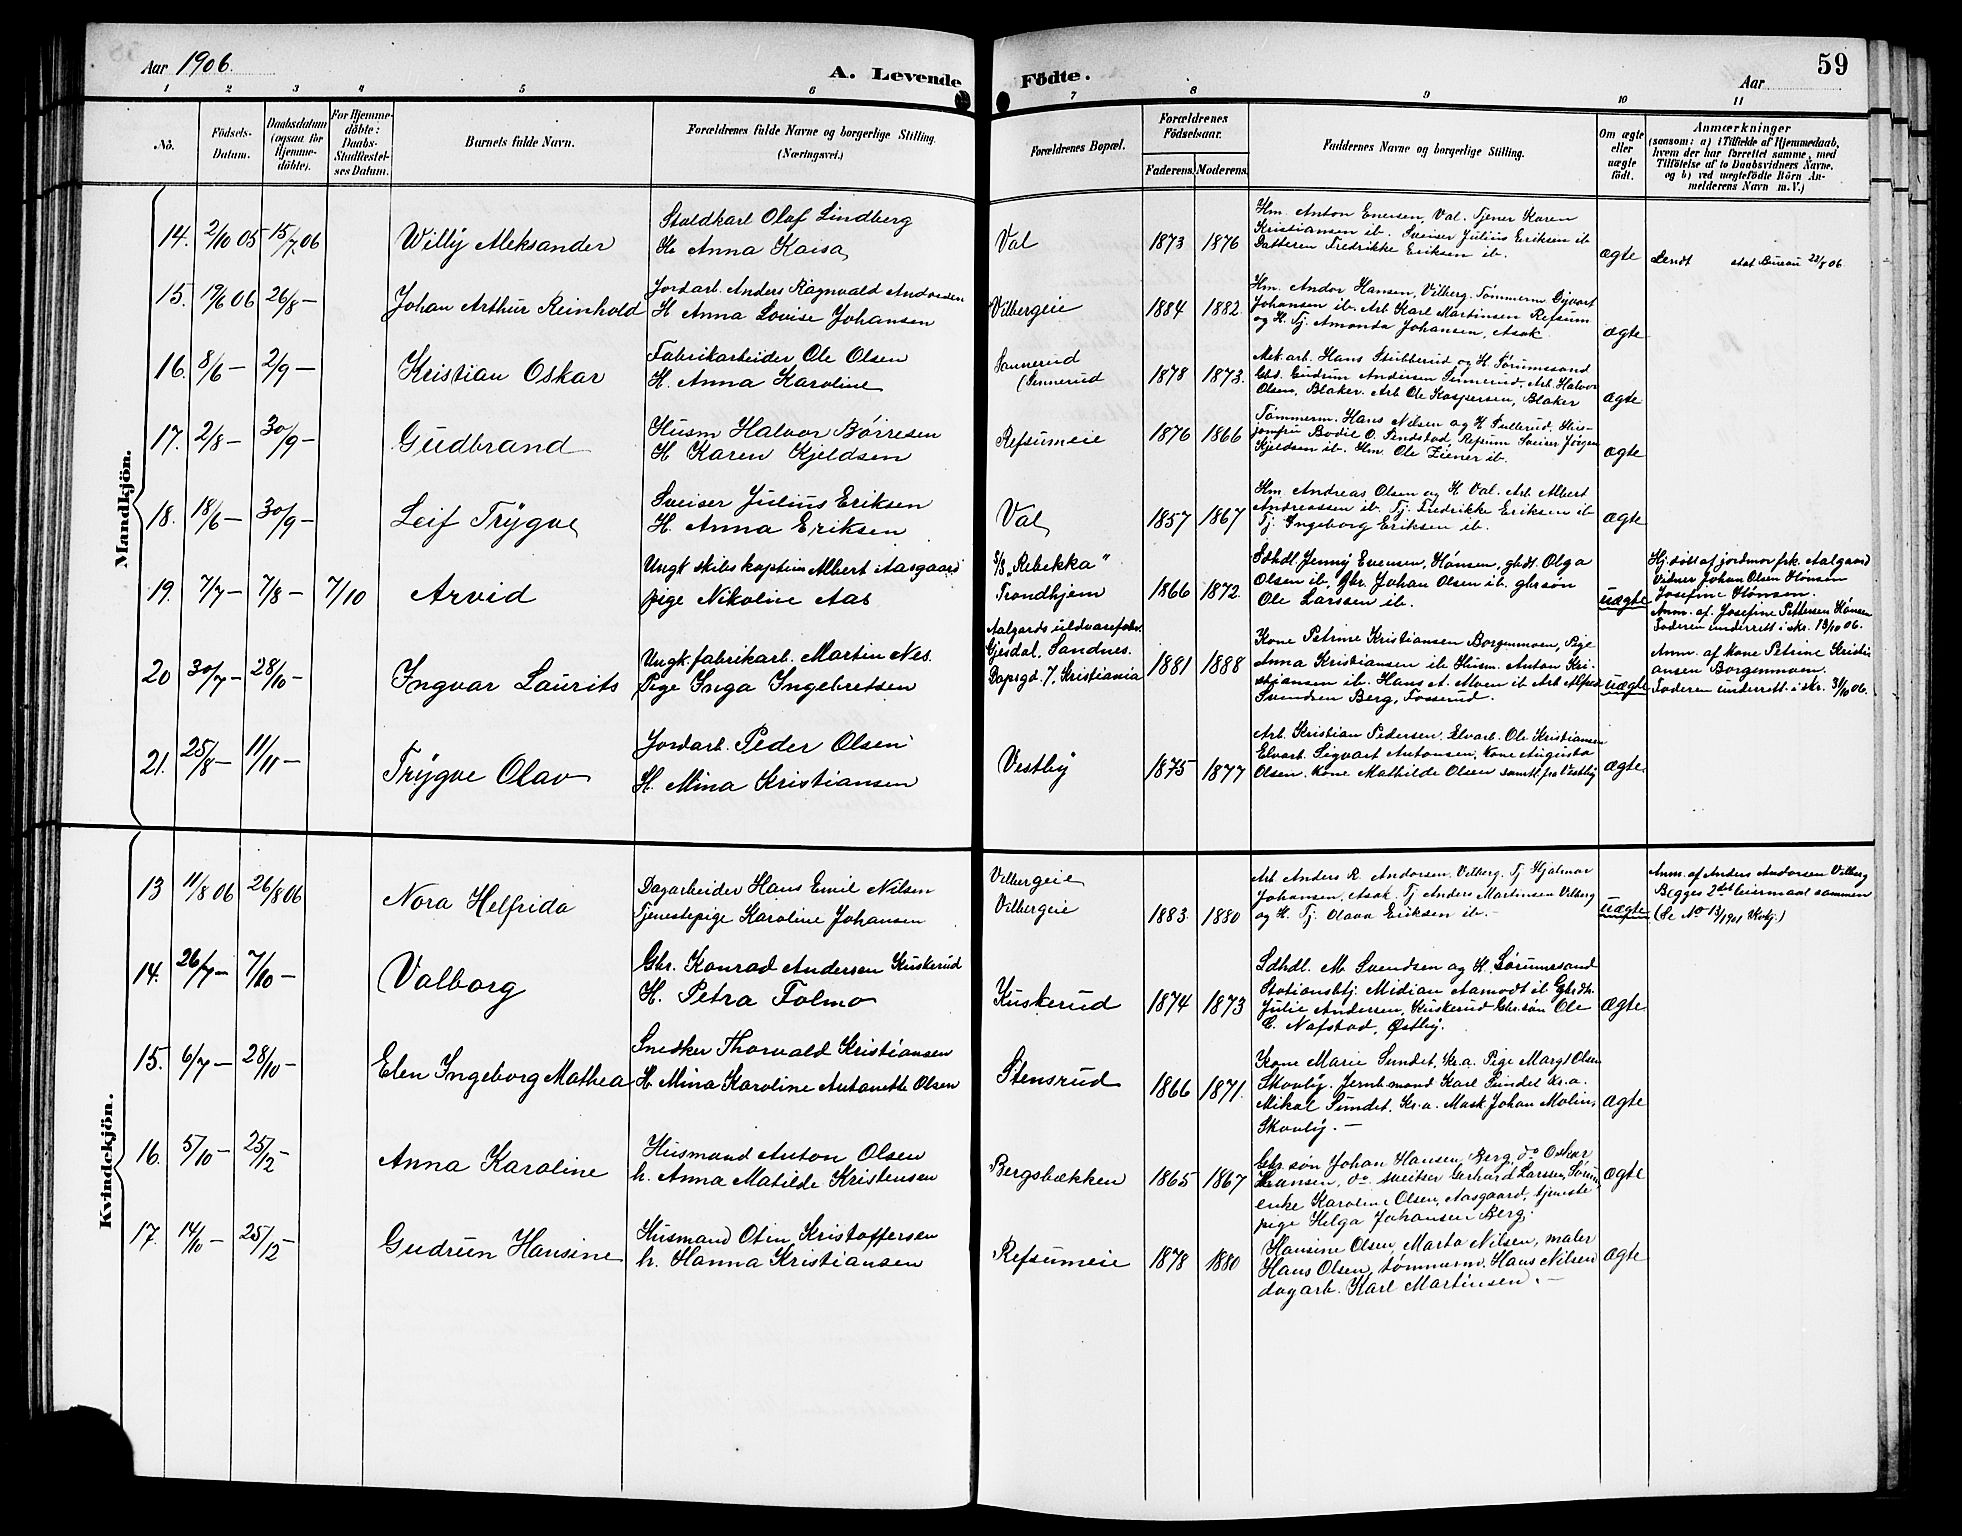 Aar 1906.
A. Levende
1 2 3 4 5 6
No.
Födsels-
Datum.
Daabsdatum
(ogsaa for
Hjemme-
døbte).
For Hjemme-
døbte:
Daabs-
Stadfæstel-
ses Datum.
Barnets fulde Navn.
Forældrenes fulde Navne og borgerlige Stilling.
(Næringsvei.)
Mandkjön.
14. 2/10 05 15/7 06 Willy Aleksander
Staldkarl Olaf Lindberg
H. Anna Kaisa
15. 19/6 06 26/8 – Johan Arthur Reinhold
Jordarb. Anders Ragnvald Andorsen
H. Anna Lovise Johansen
16. 8/6 – 2/9 – Kristian Oskar
Fabrikarbeider Ole Olsen
H. Anna Karoline
17. 2/8 – 30/9 – Gudbrand
Husm Halvor Børresen
H. Karen Kjeldsen
18. 18/6 – 30/9 – Leif Trygve
Sveiser Julius Eriksen
H. Anna Eriksen
19. 7/7 – 7/8 – 7/10 Arvid
Ungk skibskaptein Albert Aasgaard
pige Nikoline Aas
20 30/7 – 28/10 – Ingvar Laurits
Ungk. fabrikarb. Martin Nes.
Pige Inga Ingebretsen
21. 25/8 – 11/11 – Trygve Olav
Jordarb. Peder Olsen
H. Mina Kristiansen
Kvindekjön.
13 11/8 06 26/8 06 Nora Helfrida
Dagarbeider Hans Emil Nilsen
Tjenestepige Karoline Johansen
14. 26/7 – 7/10 – Valborg
Gbr. Konrad Andersen Kuskerud
H. Petra Folmo
15. 6/7 – 28/10 – Elen Ingeborg Mathea
Snedker Thorvald Kristiansen
H. Mina Karoline Antonette Olsen
16. 5/10 – 25/12 – Anna Karoline
Husmand Anton Olsen
h. Anna Matilde Kristensen
17. 14/10 – 25/12 – Gudrun Hansine
Husmand Otin Kristoffersen
h. Hanna Kristiansen
Födte.
59
Aar
7 8 9 10 11
Forældrenes Bopæl.
Forældrenes
Födselsaar.
Faderens. Moderens.
Faddernes Navne og borgerlige Stilling.
Om ægte
eller
uægte
født.
Anmærkninger
(saasom: a) i Tilfælde af Hjemmedaab,
hvem der har forrettet samme, med
Tilföielse af to Daabsvidners Navne,
og b) ved uegtefödte Börn An-
melderens Navn m. V.)
Val 1873 1876
Hm. Anton Enersen, Val. Tjener Karen
Kristiansen ib. Sveiser Julius Eriksen ib
Datteren Fredrikke Eriksen ib.
ægte
Sendt stat Bureau 22/8 06.
Vilbergeie 1884 1882.
Hm. Andor Hansen, Vilberg. Tømmerm
Johansen ib. Arb Karl Martinsen Refsum
og H. Tj. Amanda Johansen, Asak.
ægte
Sannerud
(Sennerud 1878 1873.
Mek. arb. Hans Stubberud og H. Sørumssand
Gbd. Gudrun Andersen Sennerud. Arb. Halvor
Olsen, Blaker. Arb Ole Kaspersen, Blaker
ægte
Refsumeie 1876 1866
Tømmerm. Hans Nilsen og H.
jomfru Bodil O. Refsum Sveiser Jørgen
Kjeldsen ib. Hm. Ole Ziener ib.
ægte
Val 1857 1867
Hm. Andreas Olsen og H. Val. Arb. Albert
Andreassen ib. Tj. Fredrikke Eriksen ib
Tj. Ingeborg Eriksen ib.
ægte
S/S „Rebekka"
Trondhjem 1866 1872.
Sdhdl. Jenny Evensen, Hønsen, gbdt Olga
Olsen ib. Gbr. Johan Olsen ib. gbrsøn
Ole Larssen ib.
uægte
Hj. døbt af jordmor frk. Aalgaard
Vidner Johan Olsen Hønsen
Josefine Hønsen.
Anm. af Josefine Pettersen Hønsen
Faderen underrett i skr. 13/10 06.
Aalgards uldvarefabr.
Gjesdal, Sandnes.
Dopsgd. 7, Kristiania 1881 1888
Kone Petrine Kristiansen Borgenmoen, Pige
Anna Kristiansen ib Husm. Anton Kri-
stiansen ib. Hans A. Moen ib Arb Alfred
Svendsen Berg, Fosserud.
uægte
Anm. af kone Petrine Kristi
ansen Borgenmoen.
Faderen underrett. i skr. 31/10 06.
Vestby 1875 1877
Arb. Kristian Pedersen. Elvarb. Ole Kristiansen
Elvarb. Sigvart Antonsen, Kone Augusta
Olsen. Kone Mathilde Olsen samtl. fra Vestby
ægte.
Vilbergeie
Vilbergeie 1883. 1880
Arb Anders R. Andorsen. Vilberg. Tj Hjalmar
Johansen, Asak. Tj Anders Martinsen Vilberg
og H. Tj. Olava Eriksen ib. –
uægte
Anm. af Anders Andorsen Vilberg
Begges 2det leiermaal sammen
(Se No 13/1901 Kvkj.)
Kuskerud 1874 1873
Sdhdl. M. Svendsen og H. Sørumssand
Stationsbtj. Midian Aamodt ib Gbrdt.
Julie Andersen, Kuskerud Gbr.søn Ole
C. Nafstad, Østby.
ægte
Stensrud 1866 1871.
Kone Marie Sundet, Kr.a. Pige Margt Olsen
Skovby. Jernb.mand Karl Sundet kr.a.
Mikal Sundet, Kr.a. Mask Johan Molin,
Skovby. –
ægte
Bergsbækken 1865 1867
Gbr. søn Johan Hansen, Berg, do Oskar
Hansen, do sveitser Gerhard Larsen, Sørum,
enke Karoline Olsen, Aasgaard, tjeneste
pige Helga Johansen Berg.
ægte
Refsumeie 1878 1880
Hansine Olsen, Marta Nilsen, maler
Hans Olsen, tømmerm. Hans Nilsen
dagarb. Karl Martinsen. –
ægte